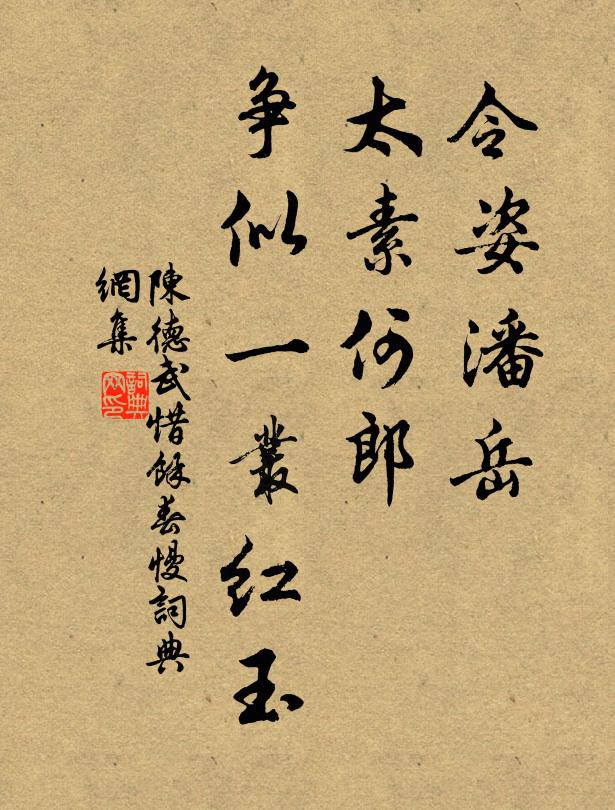 令姿潘岳
太素何郎
争似一叢紅玉
陳德武惜餘春慢詞典
網集
詞典
网印